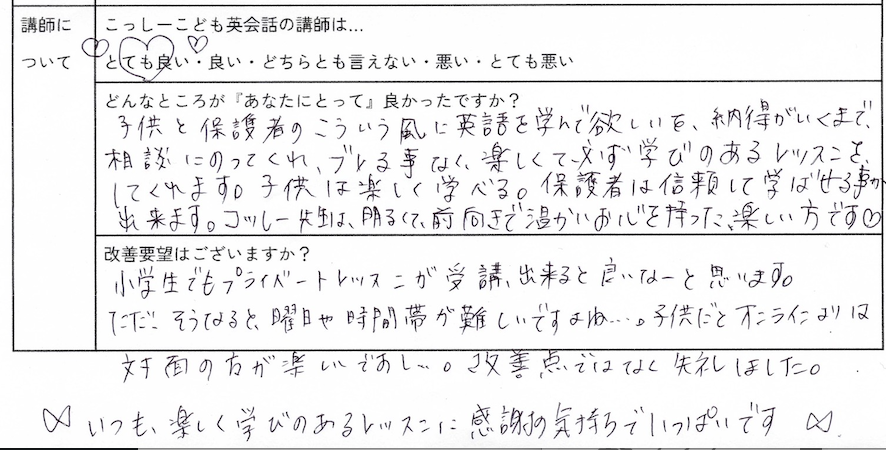 講師に
ついて
こっしーこども英会話の講師は...
とても良い・良い・どちらとも言えない・悪い・とても悪い
どんなところが『あなたにとって』良かったですか？
子供と保護者のこういう風に英語を学んで欲しいを、納得がいくまで、
相談にのってくれ、ブレる事なく、楽しくて必ず学びのあるレッスンを
してくれます。子供は楽しく学べる。保護者は信頼して学ばせる事が
出来ます。コッシー先生は、明るくて、前向きで温かいお心を持った、楽しい方です♡
改善要望はございますか？
小学生でもプライベートレッスンが受講、出来ると良いなーと思います。
ただ、そうなると、曜日や時間帯が難しいですよね…。子供だとオンラインよりは
対面の方が楽しいですし…。改善点ではなく失礼しました。
いつも、楽しく学びのあるレッスンに感謝の気持ちでいっぱいです